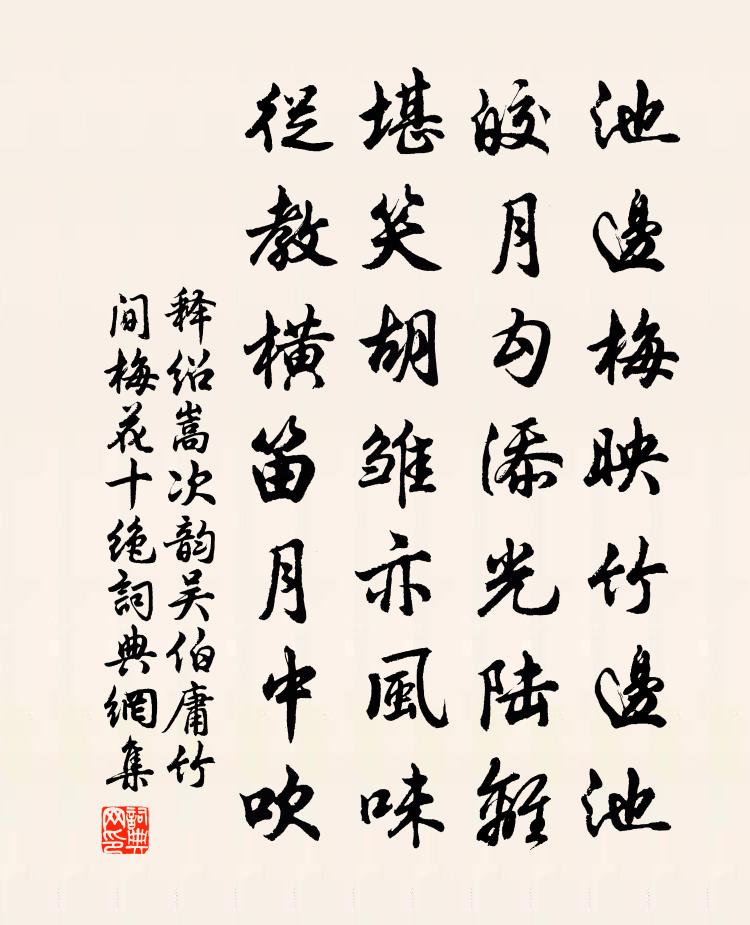 池邊梅映竹邊池
皎月勻添光陆離
堪笑胡雏亦風味
従教橫笛月中吹
释绍嵩次韵吴伯庸竹
间梅花十绝詞典網集
詞典